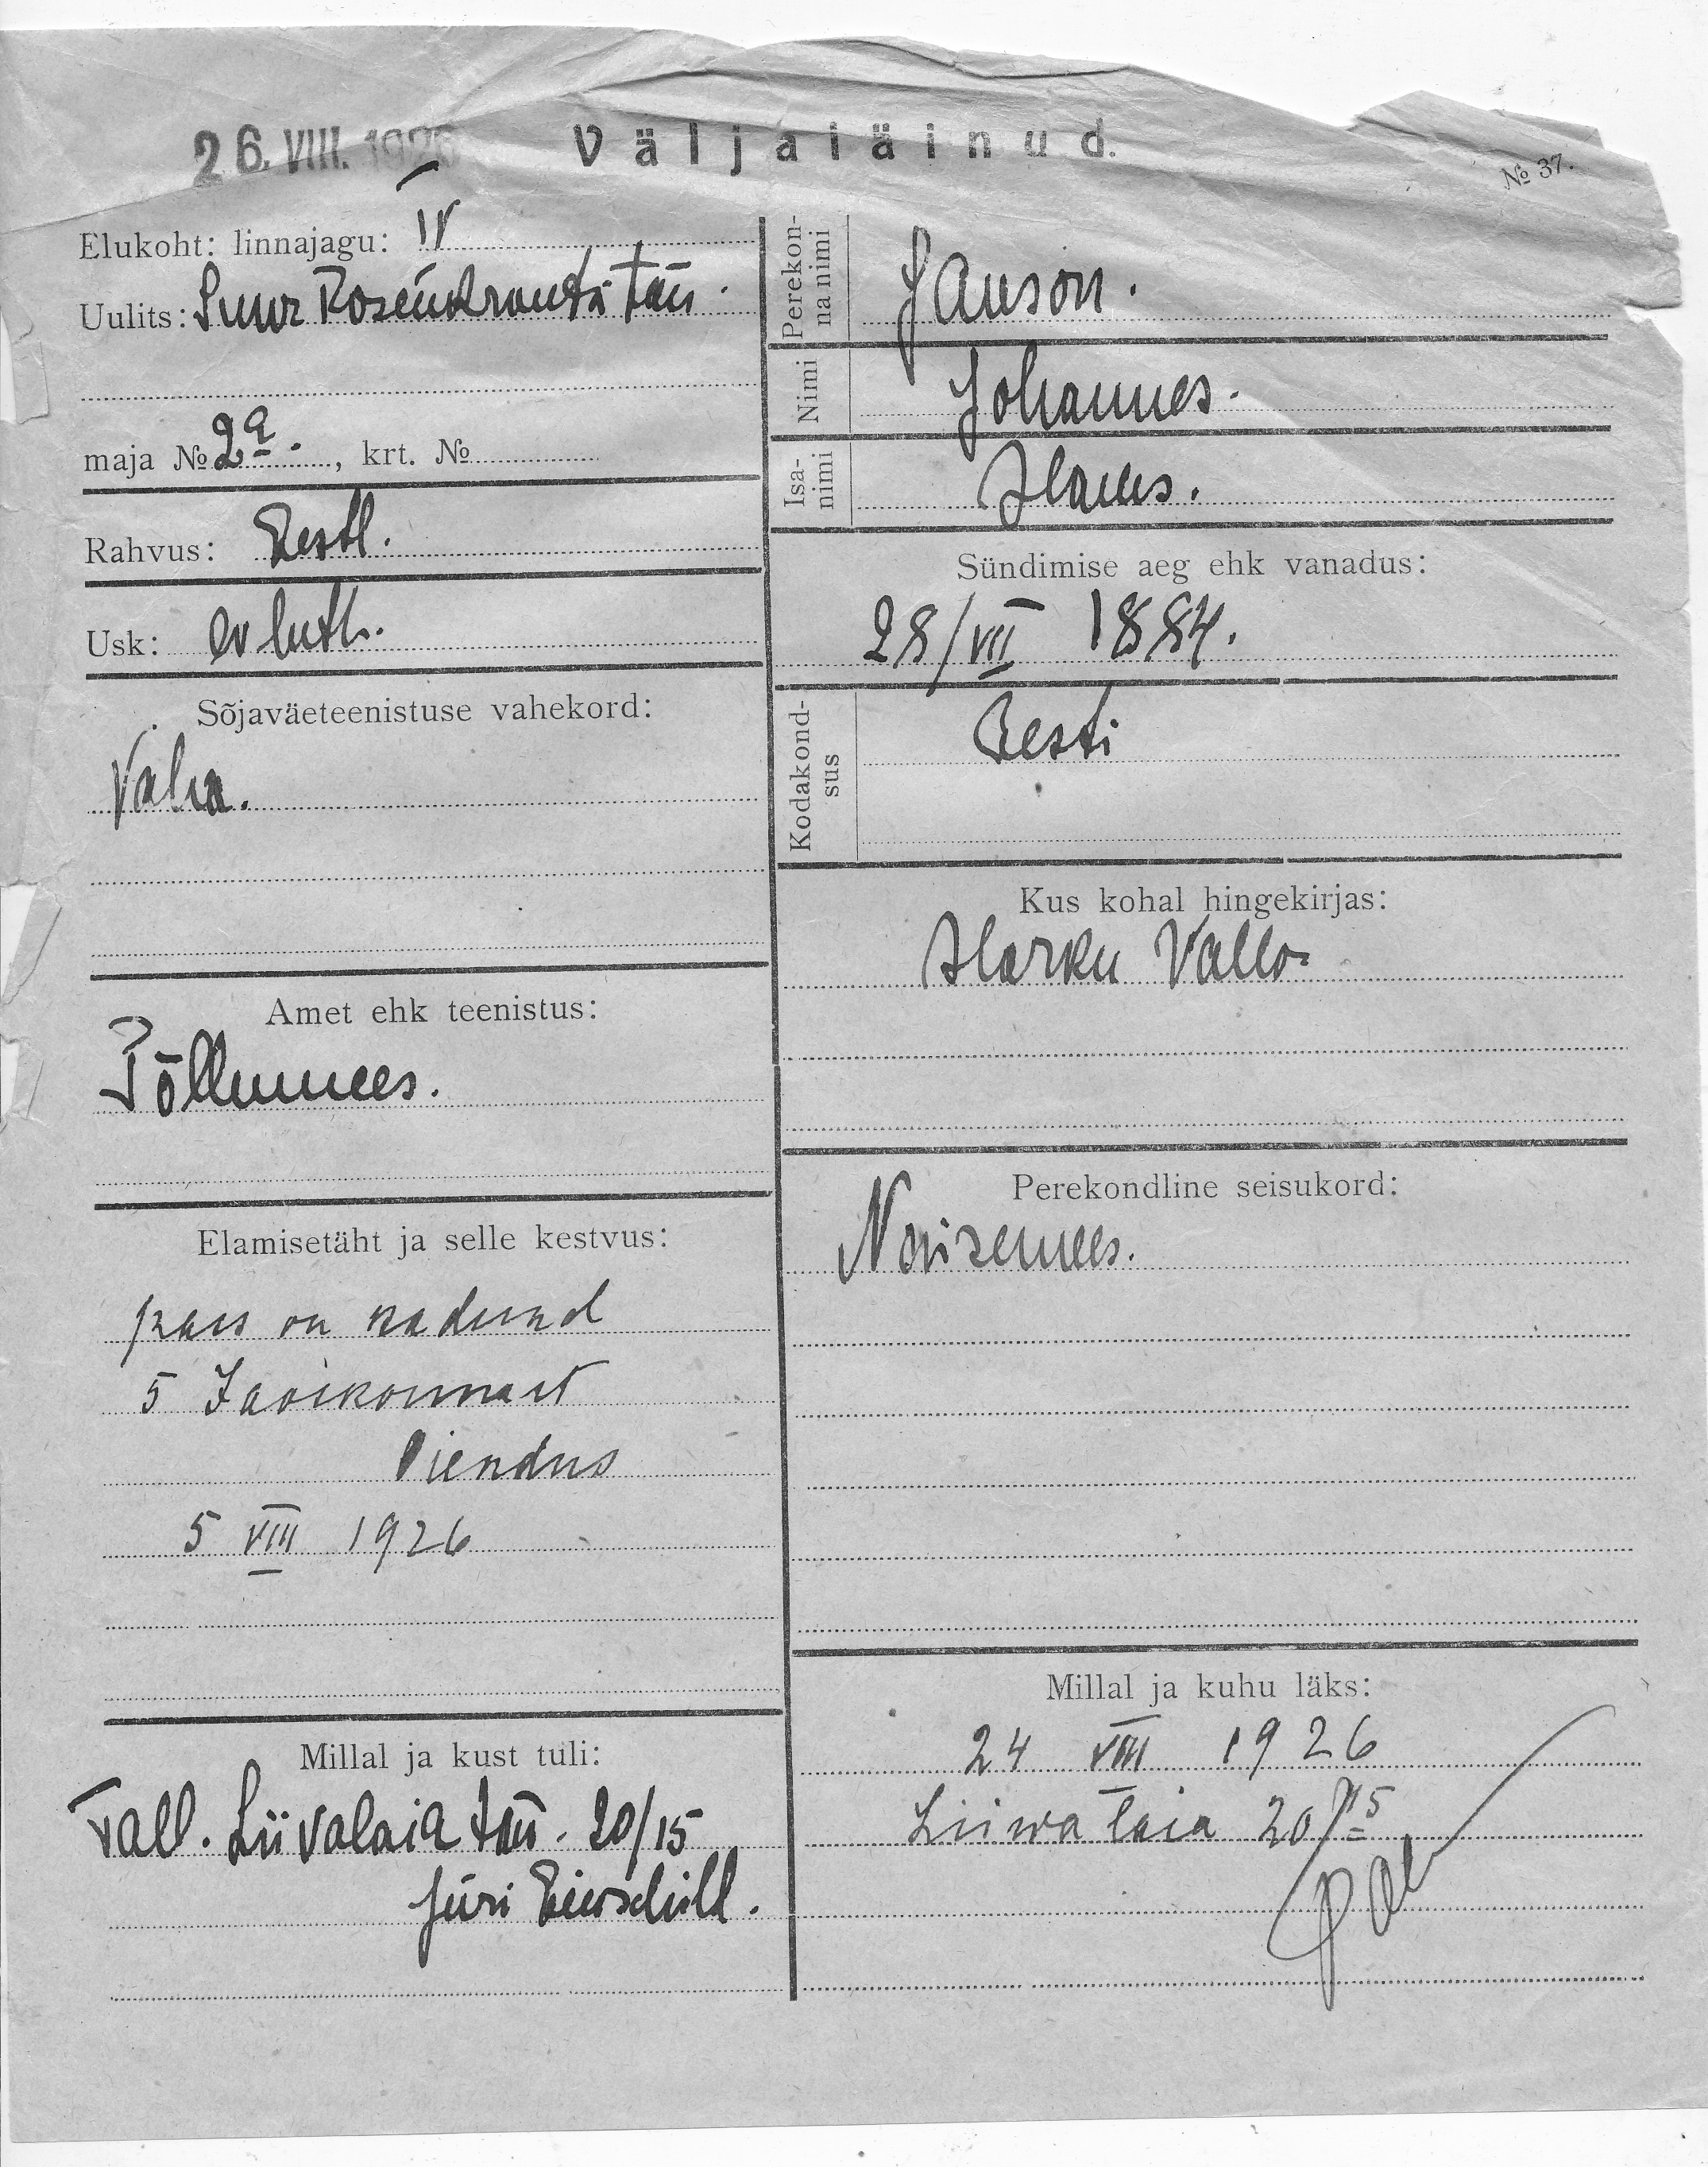 26. VIII. 1926 Väljaläinud.
№ 37.
Elukoht: linnajagu: IV
Uulits: Suur Rosenkrantsi tän.
maja № 2a., krt. №
Rahvus: Eestl.
Usk: ev luth.
Sõjaväeteenistuse vahekord:
Vaba.
Amet ehk teenistus:
Põllumees.
Elamisetäht ja selle kestvus:
pass on kadund
5 Jaoskonnast
Tõendus
5 VIII 1926
Millal ja kust tuli:
Tall. Liivalaia tän. 20/15
Jüri
Perekonna nimi Janson.
Nimi Johannes.
Isanimi Hans.
Sündimise aeg ehk vanadus:
28/VII 1884.
Kodakondsus Eesti
Kus kohal hingekirjas:
Harku Valla
Perekondline seisukord:
Naisemees.
Millal ja kuhu läks:
24 VIII 1926
Liiwa laia 20/15